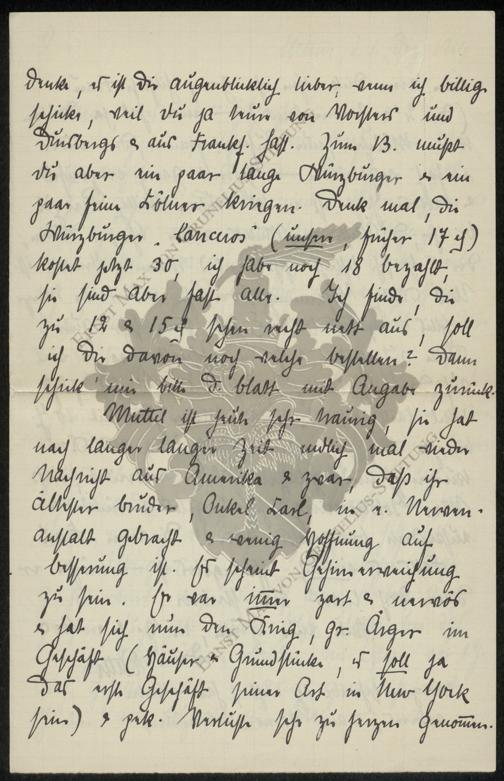 denke, es ist Dir augenblicklich lieber, wenn ich billige
schicke, weil Du ja teure von Vorsters und
Duisbergs & aus Frankf. hast. Zum 13. mußt
Du aber ein paar lange Würzburger & ein
paar feine Kölner kriegen. Denk mal, die
Würzburger „Canceros" (unsere, früher 17 ₰)
kosten jetzt 30, ich habe noch 18 bezahlt,
sie sind aber fast alle. Ich finde, die
zu 12 & 15 ₰ sehen recht nett aus, soll
ich Dir davon noch welche bestellen? Dann
schick' mir bitte d. blatt mit Angabe zurück.
Muttel ist heute sehr traurig, sie hat
nach langer langer Zeit endlich mal wieder
Nachricht aus Amerika & zwar, daß ihr
ältester bruder, Onkel Carl, in e. Nerven-
anstalt gebracht & wenig Hoffnung auf
besserung ist. Es scheint Gehirnerweichung
zu sein. Er war immer zart & nervös
& hat sich nun den Krieg, gr. Ärger im
Geschäft (Häuser & Grundstücke, es soll ja
das erste Geschäft seiner Art in New York
sein) & pek. Verluste sehr zu herzen genommen.
ERNST MAX VON GRUNELIUS-STIFTUNG